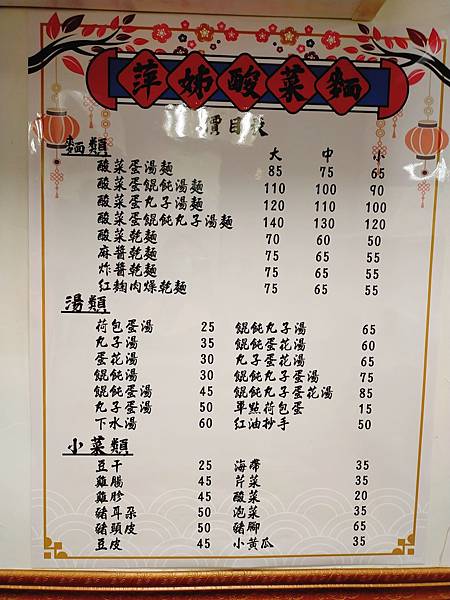 萍姊酸菜麵
價目表
麵類 大 中 小
酸菜蛋湯麵 85 75 65
酸菜蛋餛飩湯麵 110 100 90
酸菜蛋丸子湯麵 120 110 100
酸菜蛋餛飩丸子湯麵 140 130 120
酸菜乾麵 70 60 50
麻醬乾麵 75 65 55
炸醬乾麵 75 65 55
紅麴肉燥乾麵 75 65 55
湯類
荷包蛋湯 25 餛飩丸子湯 65
丸子湯 35 餛飩蛋花湯 60
蛋花湯 30 丸子蛋花湯 65
餛飩湯 30 餛飩丸子蛋湯 75
餛飩蛋湯 45 餛飩丸子蛋花湯 85
丸子蛋湯 50 單點荷包蛋 15
下水湯 60 紅油抄手 50
小菜類
豆干 25 海帶 35
雞腸 45 芹菜 35
雞胗 45 酸菜 20
豬耳朵 50 泡菜 35
豬頭皮 50 豬腳 65
豆皮 45 小黃瓜 35